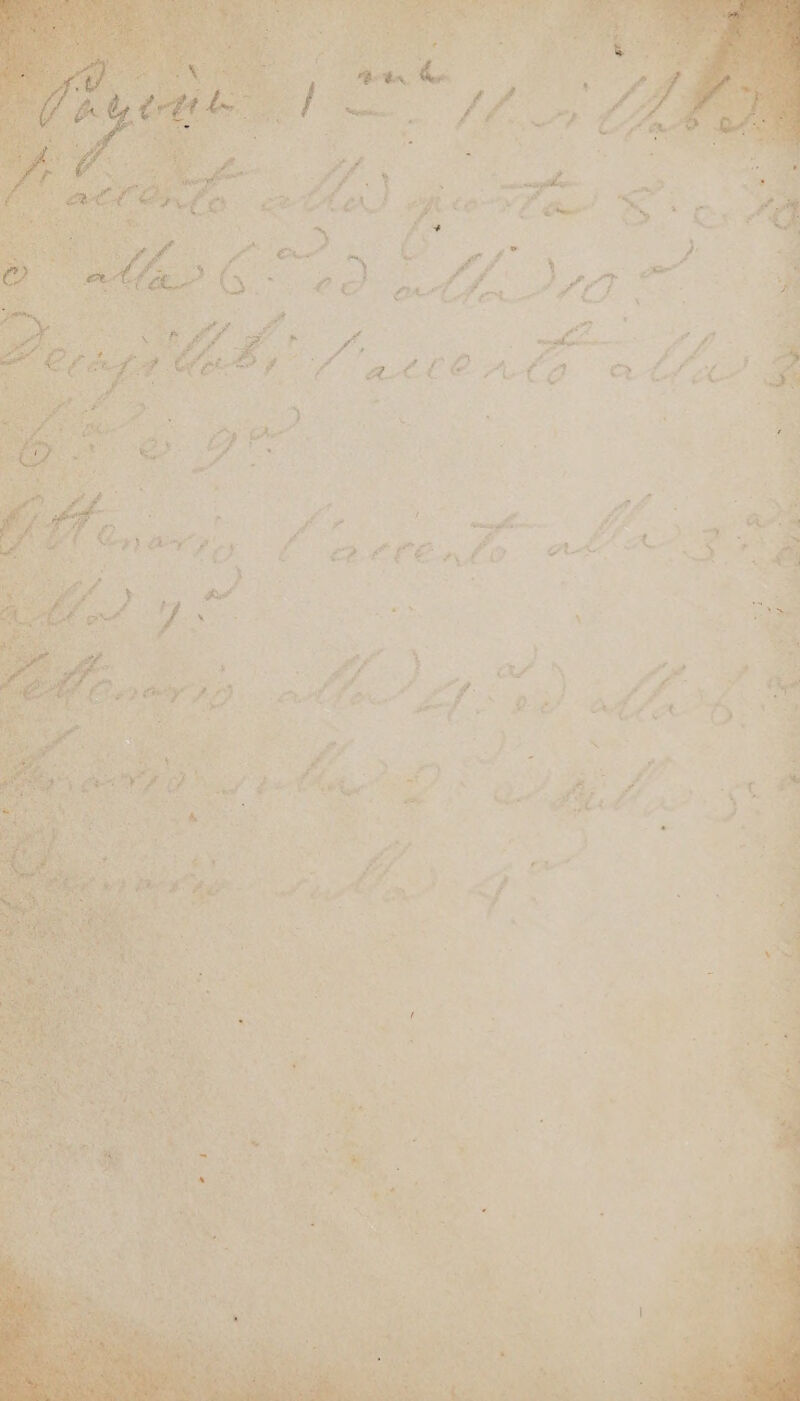 l'accento alla porta 8. e 10
o alla 6.a ed alla 10.a
Decasillabi l'accento alla 3
6.a e 9.a
Ottenario l'accento alla 3.a e
alla 7.a
Settenario alla 4.a ed alla 6.a
Senario sulla 2.a e sulla 5.a
sulla 4.a